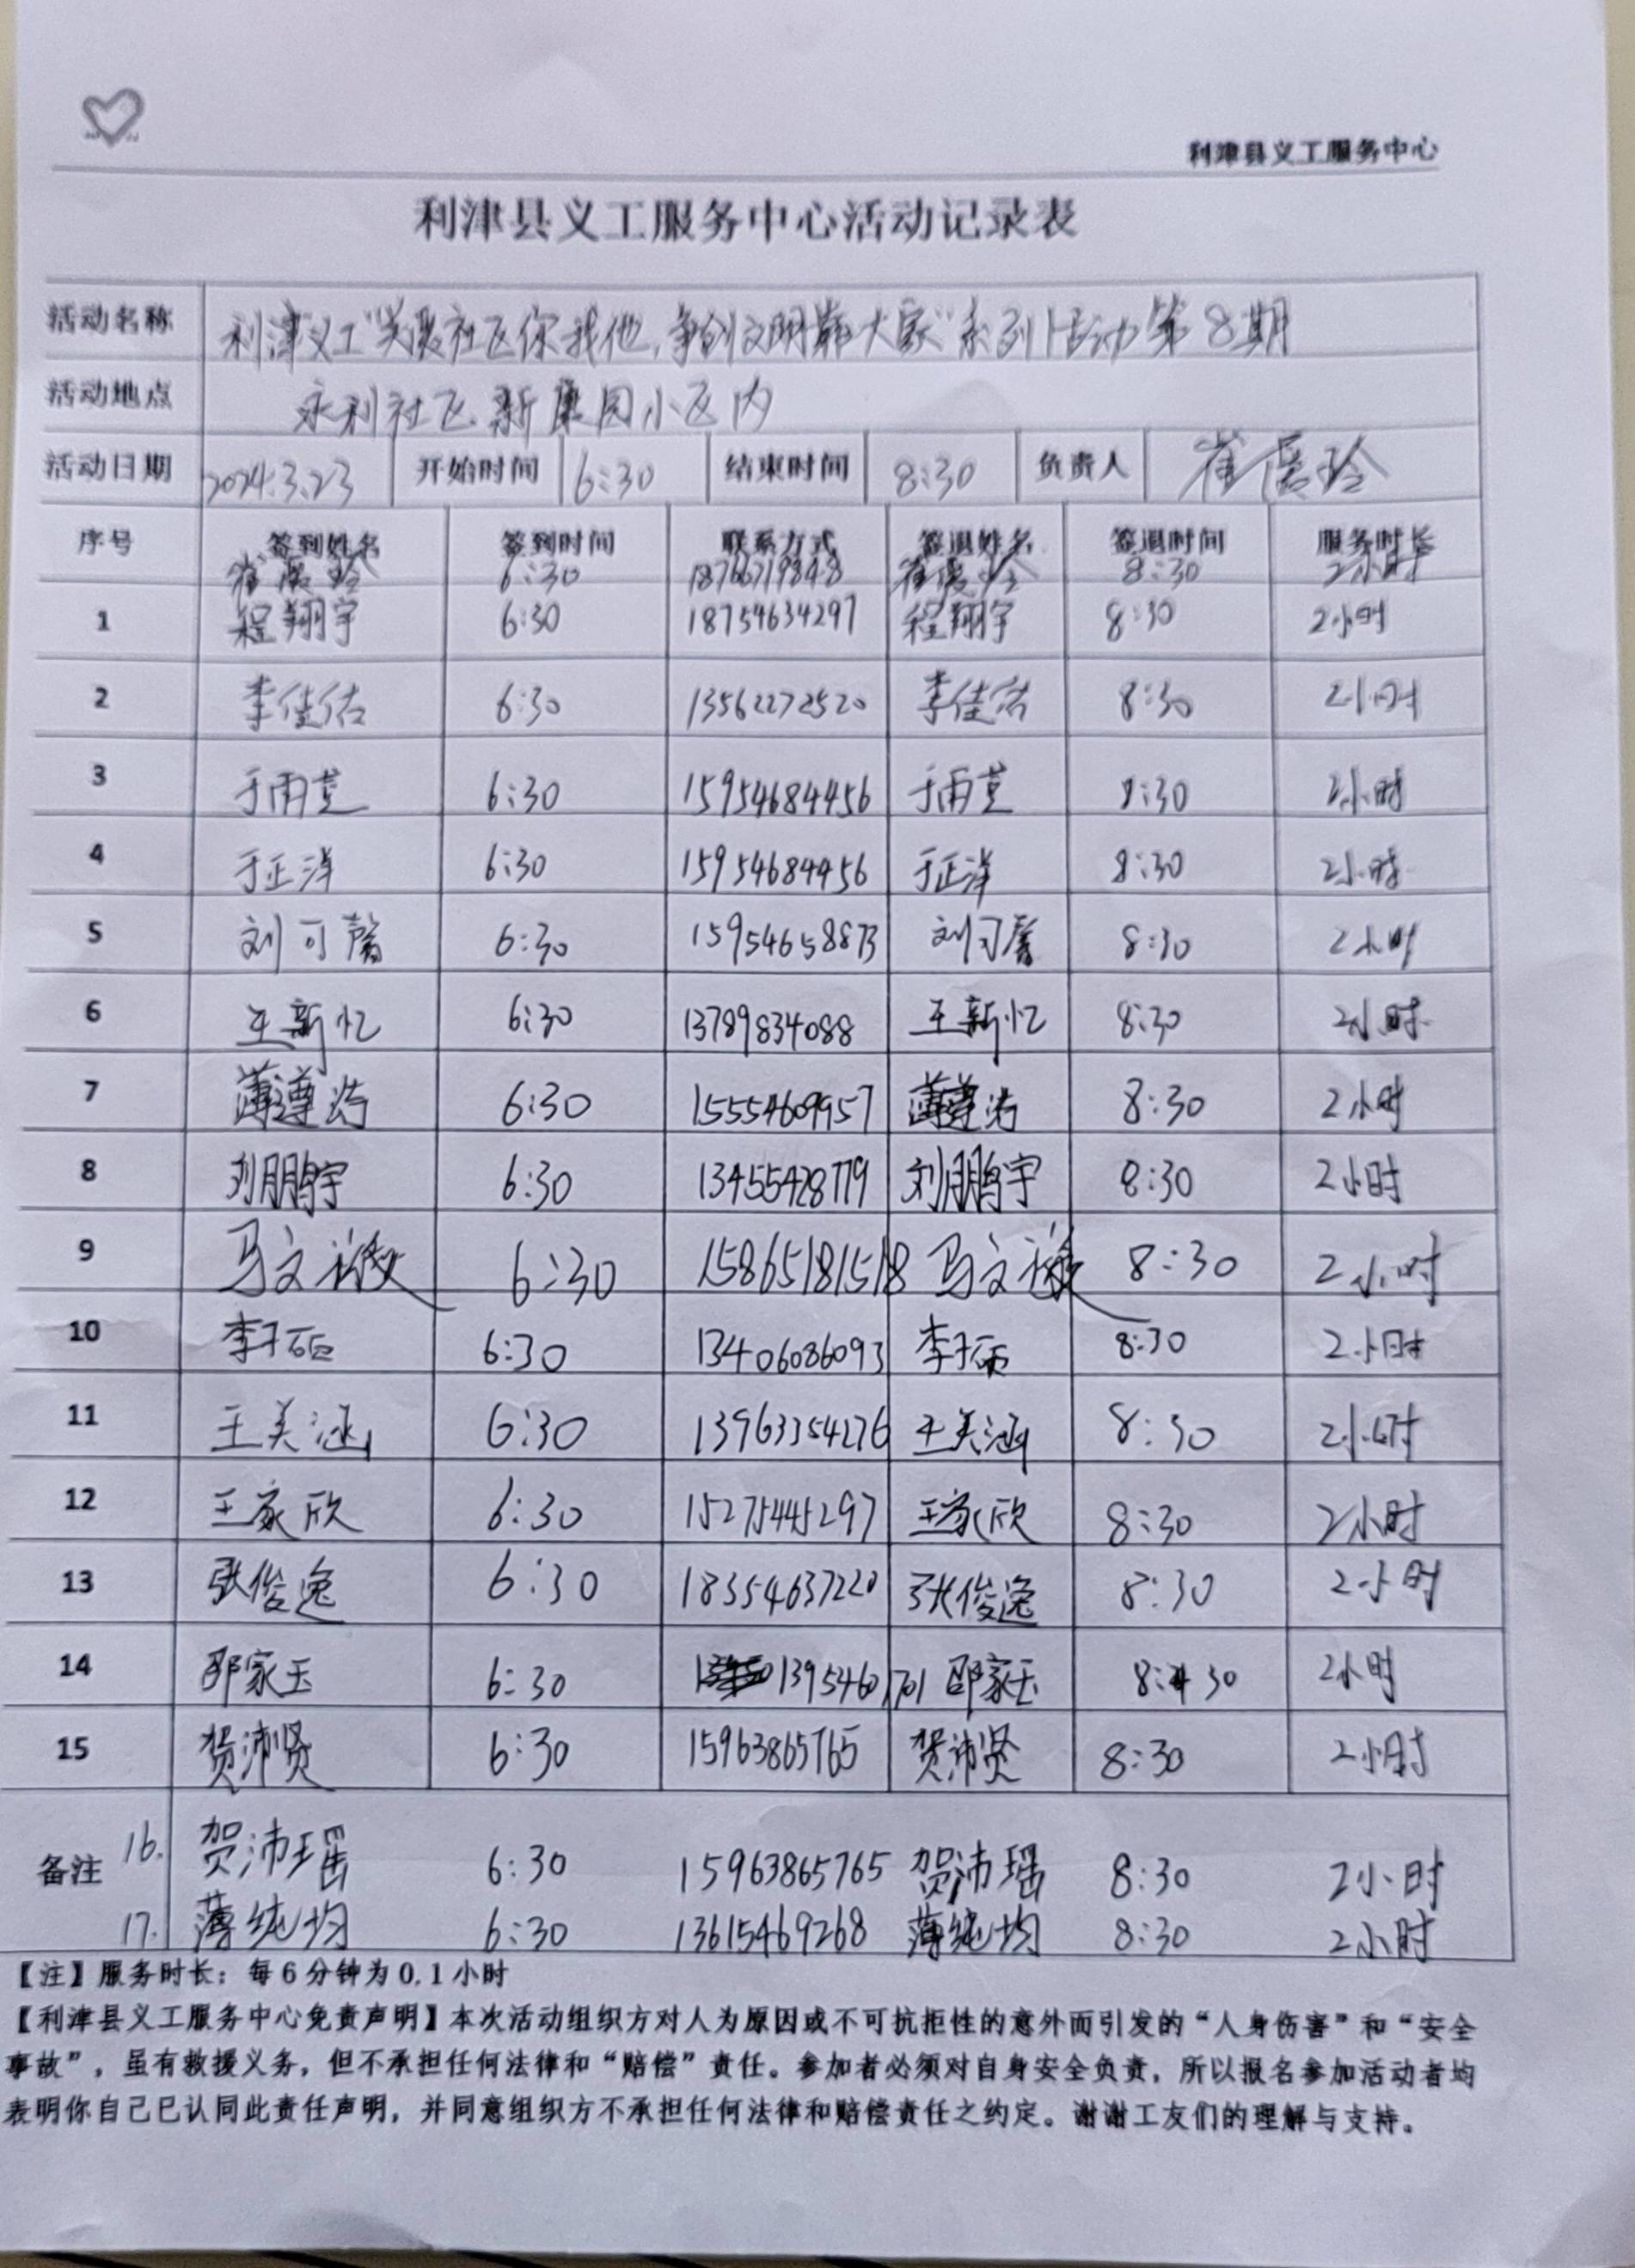 利津县义工服务中心
利津县义工服务中心活动记录表
活动名称 利津义工“关爱社区你我他,争创文明靠大家”系列活动第8期
活动地点 永利社区新康园小区内
活动日期 2024.3.23 开始时间 6:30 结束时间 8:30 负责人 崔玲
序号 签到姓名 签到时间 联系方式 签退姓名 签退时间 服务时长
崔玲 6:30 18766719848 崔玲 8:30 2小时
1 程翔宇 6:30 18754634297 程翔宇 8:30 2小时
2 李佳佑 6:30 13562272520 李佳佑 8:30 2小时
3 于雨萱 6:30 15954684456 于雨萱 8:30 2小时
4 于正洋 6:30 15954684456 于正洋 8:30 2小时
5 刘可馨 6:30 15954658873 刘可馨 8:30 2小时
6 王新忆 6:30 13789834088 王新忆 8:30 2小时
7 薄遵浩 6:30 15554609957 薄遵浩 8:30 2小时
8 刘鹏宇 6:30 13455428779 刘鹏宇 8:30 2小时
9 马文 6:30 15865181518 马文 8:30 2小时
10 李子硕 6:30 13406086093 李子硕 8:30 2小时
11 王美涵 6:30 13963354276 王美涵 8:30 2小时
12 王家欣 6:30 15275445297 王家欣 8:30 2小时
13 张俊逸 6:30 18354637220 张俊逸 8:30 2小时
14 邵家玉 6:30 13954601701 邵家玉 8:30 2小时
15 贺沛贤 6:30 15963865765 贺沛贤 8:30 2小时
备注 16. 贺沛瑶 6:30 15963865765 贺沛瑶 8:30 2小时
17. 薄纯均 6:30 13615469268 薄纯均 8:30 2小时
【注】服务时长：每6分钟为0.1小时
【利津县义工服务中心免责声明】本次活动组织方对人为原因或不可抗拒性的意外而引发的“人身伤害”和“安全
事故”，虽有救援义务，但不承担任何法律和“赔偿”责任。参加者必须对自身安全负责，所以报名参加活动者均
表明你自己已认同此责任声明，并同意组织方不承担任何法律和赔偿责任之约定。谢谢工友们的理解与支持。